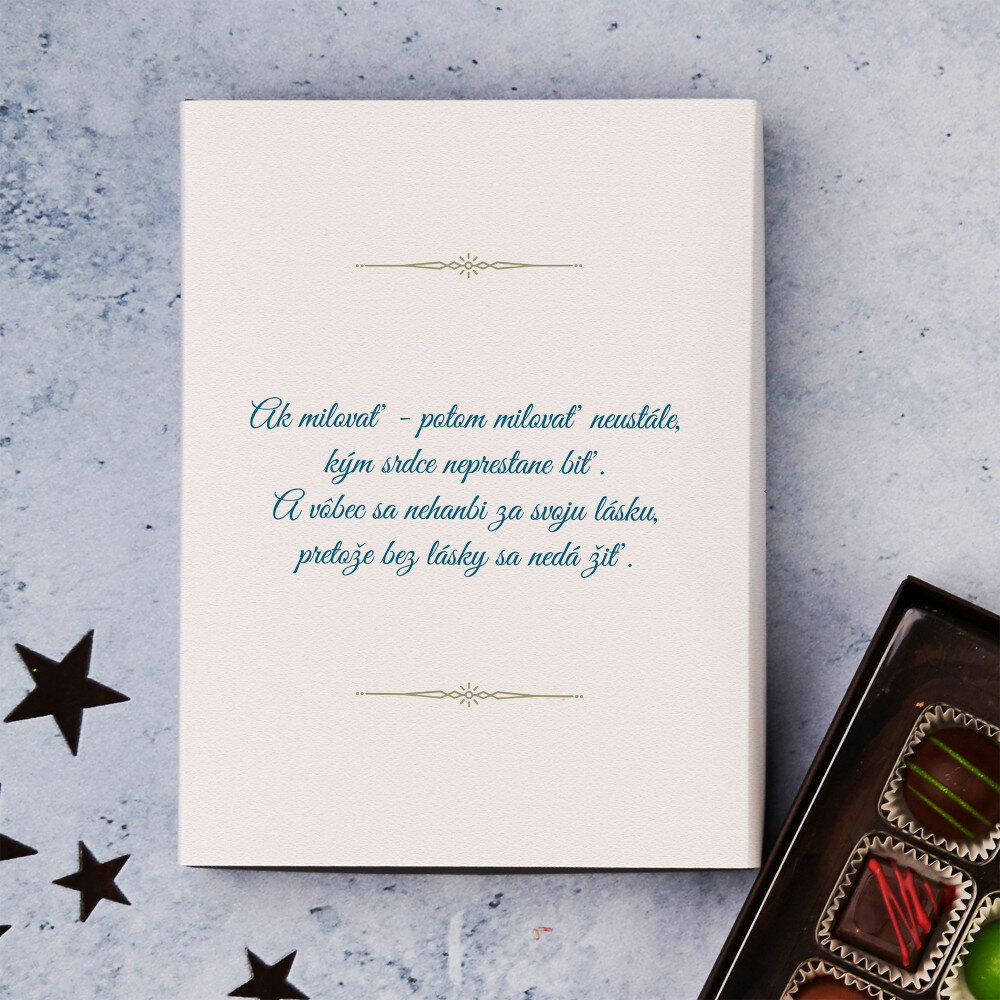 Ak milovať - potom milovať neustále,
kým srdce neprestane biť.
A vôbec sa nehanbi za svoju lásku,
pretože bez lásky sa nedá žiť.